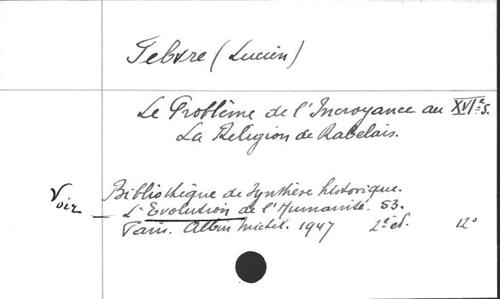 Febvre (Lucien)
Le Problème de l'Incroyance au XVIe s.
La Religion de Rabelais.
Bibliothèque de Synthèse historique.
Voir — L'Evolution de l'Humanité. 53.
Paris. Albin Michel. 1947 2e éd. 12°